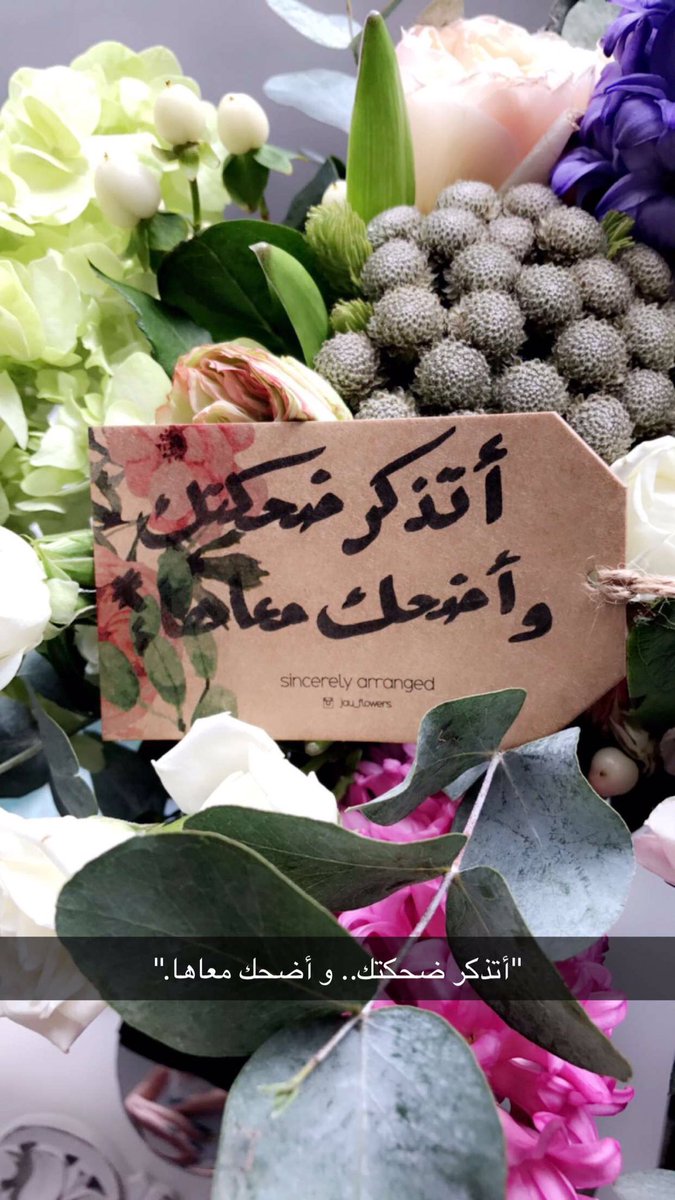 أتذكر ضحكتك
وأضحك معاها.
sincerely arranged
jau_flowers
"أتذكر ضحكتك.. و أضحك معاها."